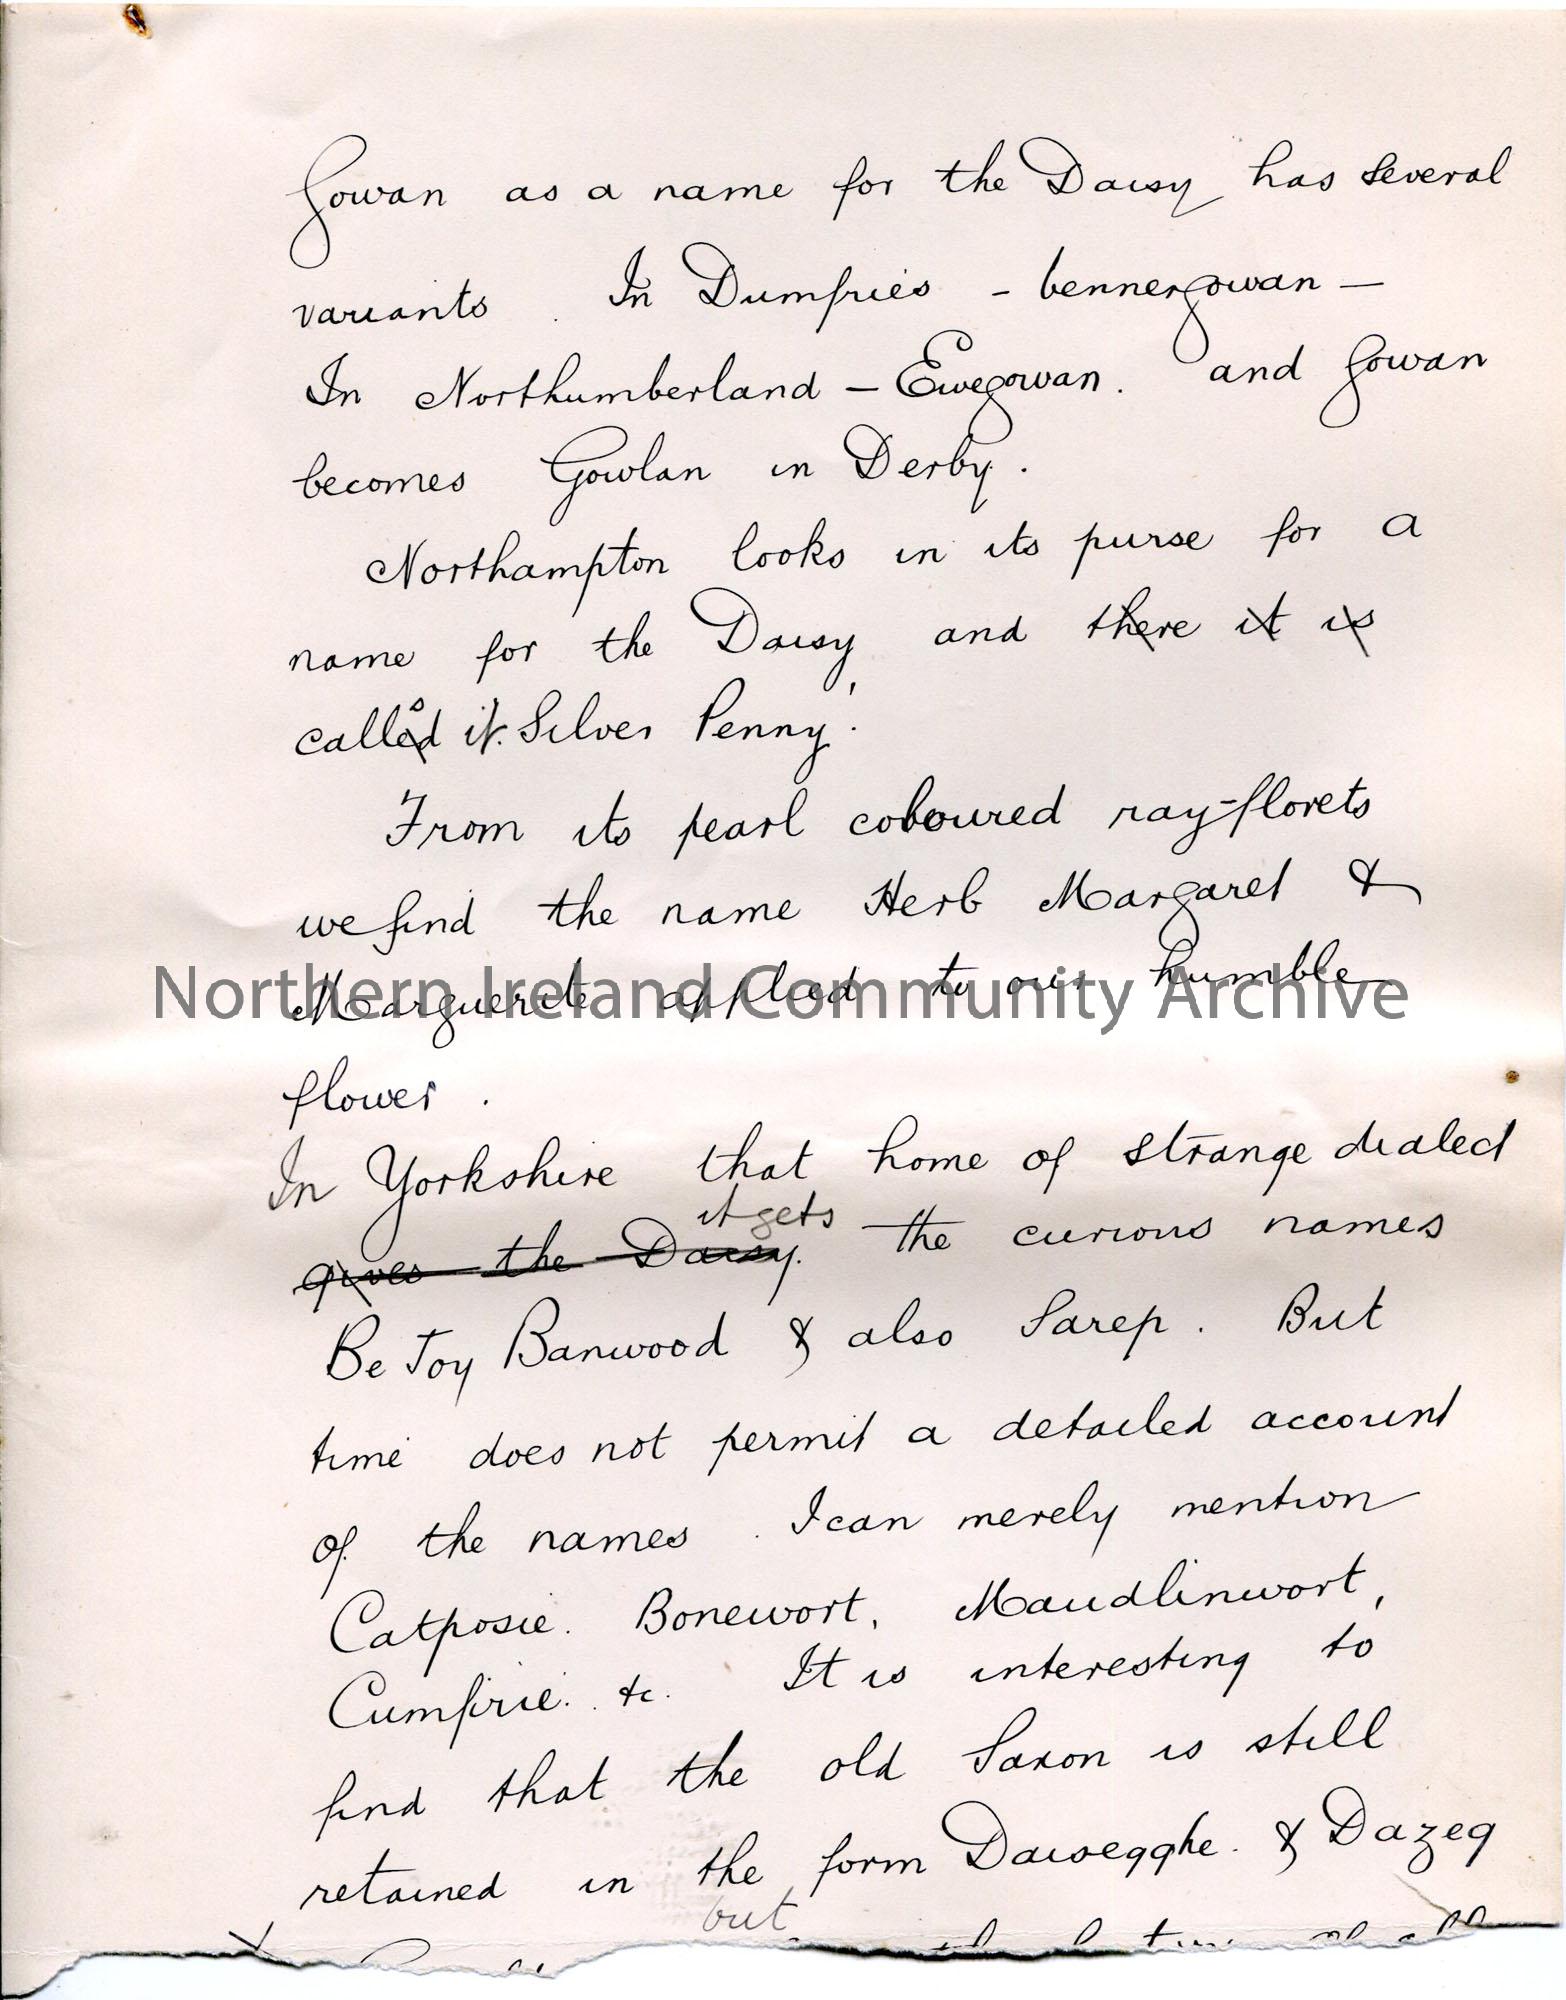 Gowan as a name for the Daisy has several
variants. In Dumfries - bennergowan -
In Northumberland - Ewegowan. and Gowan
becomes Gowlan in Derby.
Northampton looks in its purse for a
name for the Daisy and there it is
calls it 'Silver Penny'.
From its pearl coloured ray-florets
we find the name Herb Margaret &
Marguerite applied to our humble
Northern Ireland Community Archive
flower.
In Yorkshire that home of strange dialect
it gets
gives the Daisy. the curious names
Be Joy Banwood & also Sarep. But
time does not permit a detailed account
of the names. I can merely mention
Catposie. Bonewort, Maudlinwort,
Cumfirie. &c. It is interesting to
find that the old Saxon is still
retained in the form Daisegghe. & Dazeg
but